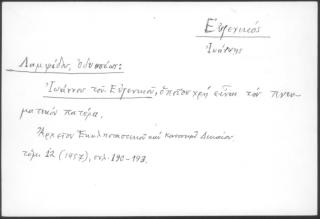 Εὐγενικός
Ἰωάννης
Λαμψίδης, Ὀδυσσέως:
Ἰωάννου τοῦ Εὐγενικοῦ, ὁποῖον χρὴ εἶναι τὸν πνευ-
ματικὸν πατέρα,
Ἀρχεῖον Ἐκκλησιαστικοῦ καὶ Κανονικοῦ Δικαίου
τόμ. 12 (1957), σελ. 190-193.